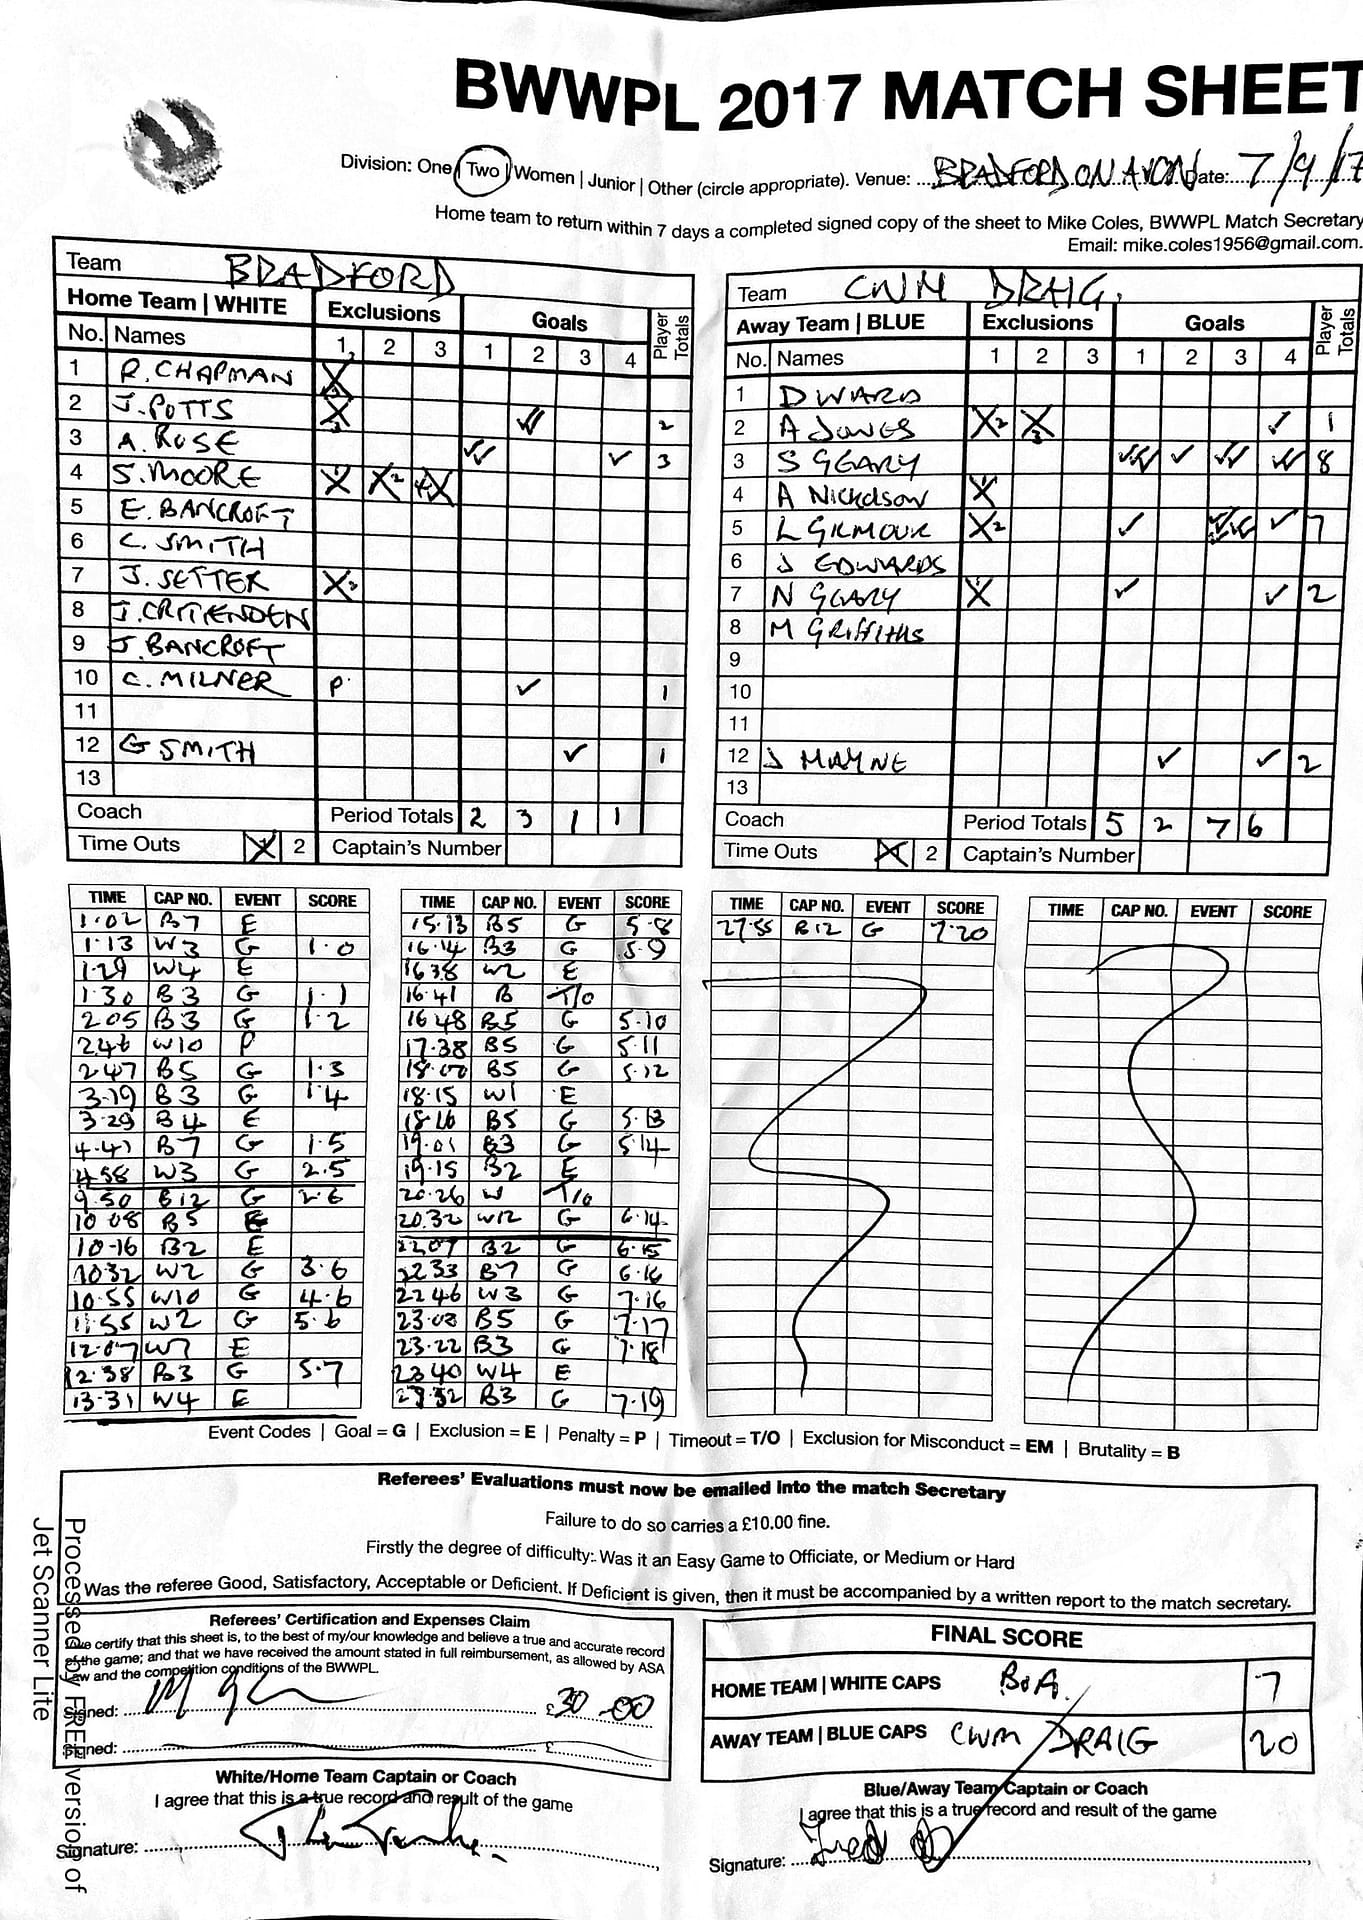 BWWPL 2017 MATCH SHEET
Division: One | Two | Women | Junior | Other (circle appropriate). Venue: BRADFORD ON AVON Date: 7/9/17
Home team to return within 7 days a completed signed copy of the sheet to Mike Coles, BWWPL Match Secretary
Email: mike.coles1956@gmail.com.
Team BRADFORD
Home Team | WHITE Exclusions Goals Player Totals
No. Names 1 2 3 1 2 3 4
1 R. CHAPMAN X
2 J. POTTS X ✓✓ 2
3 A. ROSE ✓✓ ✓ 3
4 S. MOORE X X2 X
5 E. BANCROFT
6 C. SMITH
7 J. SETTER X2
8 J. CRITTENDEN
9 J. BANCROFT
10 C. MILNER P ✓ 1
11
12 G SMITH ✓ 1
13
Coach Period Totals 2 3 1 1
Time Outs X 2 Captain's Number
Team CWM DRAIG
Away Team | BLUE Exclusions Goals Player Totals
No. Names 1 2 3 1 2 3 4
1 D WARD
2 A JONES X2 X3 ✓ 1
3 S GEARY ✓✓✓ ✓ ✓✓ ✓✓ 8
4 A NICKOLSON X
5 L GILMOUR X2 ✓ ✓ 7
6 J EDWARDS
7 N GEARY X ✓ ✓ 2
8 M GRIFFITHS
9
10
11
12 J MAYNE ✓ ✓ 2
13
Coach Period Totals 5 2 7 6
Time Outs X 2 Captain's Number
TIME CAP NO. EVENT SCORE
1.02 B7 E
1.13 W3 G 1.0
1.29 W4 E
1.30 B3 G 1.1
2.05 B3 G 1.2
2.46 W10 P
2.47 B5 G 1.3
3.19 B3 G 1.4
3.29 B4 E
4.47 B7 G 1.5
4.58 W3 G 2.5
9.50 B12 G 2.6
10 08 B5 E
10-16 B2 E
10.32 W2 G 3.6
10.55 W10 G 4.6
11.55 W2 G 5.6
12.07 W7 E
12.38 B3 G 5.7
13.31 W4 E
TIME CAP NO. EVENT SCORE
15.13 B5 G 5.8
16.14 B3 G 5.9
16 38 W2 E
16.41 B T/O
16 48 B5 G 5.10
17.38 B5 G 5.11
18.00 B5 G 5.12
18.15 W1 E
18.16 B5 G 5.13
19.01 B3 G 5.14
19.15 B2 E
20.26 W T/O
20.32 W12 G 6.14
22.07 B2 G 6.15
22 33 B7 G 6.16
22 46 W3 G 7.16
23.03 B5 G 7.17
23.22 B3 G 7.18
23 40 W4 E
27.32 B3 G 7.19
TIME CAP NO. EVENT SCORE
27.55 B12 G 7.20
TIME CAP NO. EVENT SCORE
Event Codes | Goal = G | Exclusion = E | Penalty = P | Timeout = T/O | Exclusion for Misconduct = EM | Brutality = B
Referees' Evaluations must now be emailed into the match Secretary
Failure to do so carries a £10.00 fine.
Firstly the degree of difficulty:. Was it an Easy Game to Officiate, or Medium or Hard
Was the referee Good, Satisfactory, Acceptable or Deficient. If Deficient is given, then it must be accompanied by a written report to the match secretary.
Referees' Certification and Expenses Claim
I/we certify that this sheet is, to the best of my/our knowledge and believe a true and accurate record
of the game; and that we have received the amount stated in full reimbursement, as allowed by ASA
Law and the competition conditions of the BWWPL.
Signed: £30.00
Signed: £
White/Home Team Captain or Coach
I agree that this is a true record and result of the game
Signature:
FINAL SCORE
HOME TEAM | WHITE CAPS BoA. 7
AWAY TEAM | BLUE CAPS CWM DRAIG 20
Blue/Away Team Captain or Coach
I agree that this is a true record and result of the game
Signature:
Processed by FREE version of
Jet Scanner Lite